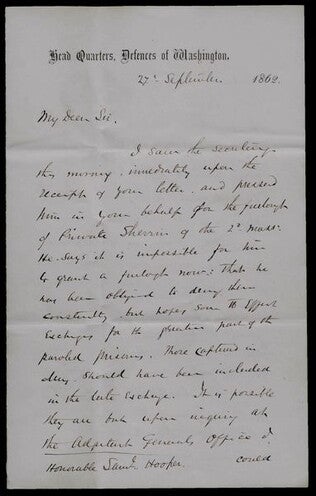 Head Quarters, Defences of Washington.
27th September 1862
My Dear Sir,
I saw the secretary
this morning, immediately upon the
receipt of your letter, and pressed
him in your behalf for the furlough
of Private Sherwin of the 2d Mass.
He says it is impossible for him
to grant a furlough now: That he
has been obliged to deny them
constantly but hopes soon to effect
exchanges for the greater part of the
paroled prisons. Those captured in
should have been included
in the late exchange. It is possible
they are but upon inquiry at
the Adjutant Generals Office I
Honorable Saml. Hooper. could